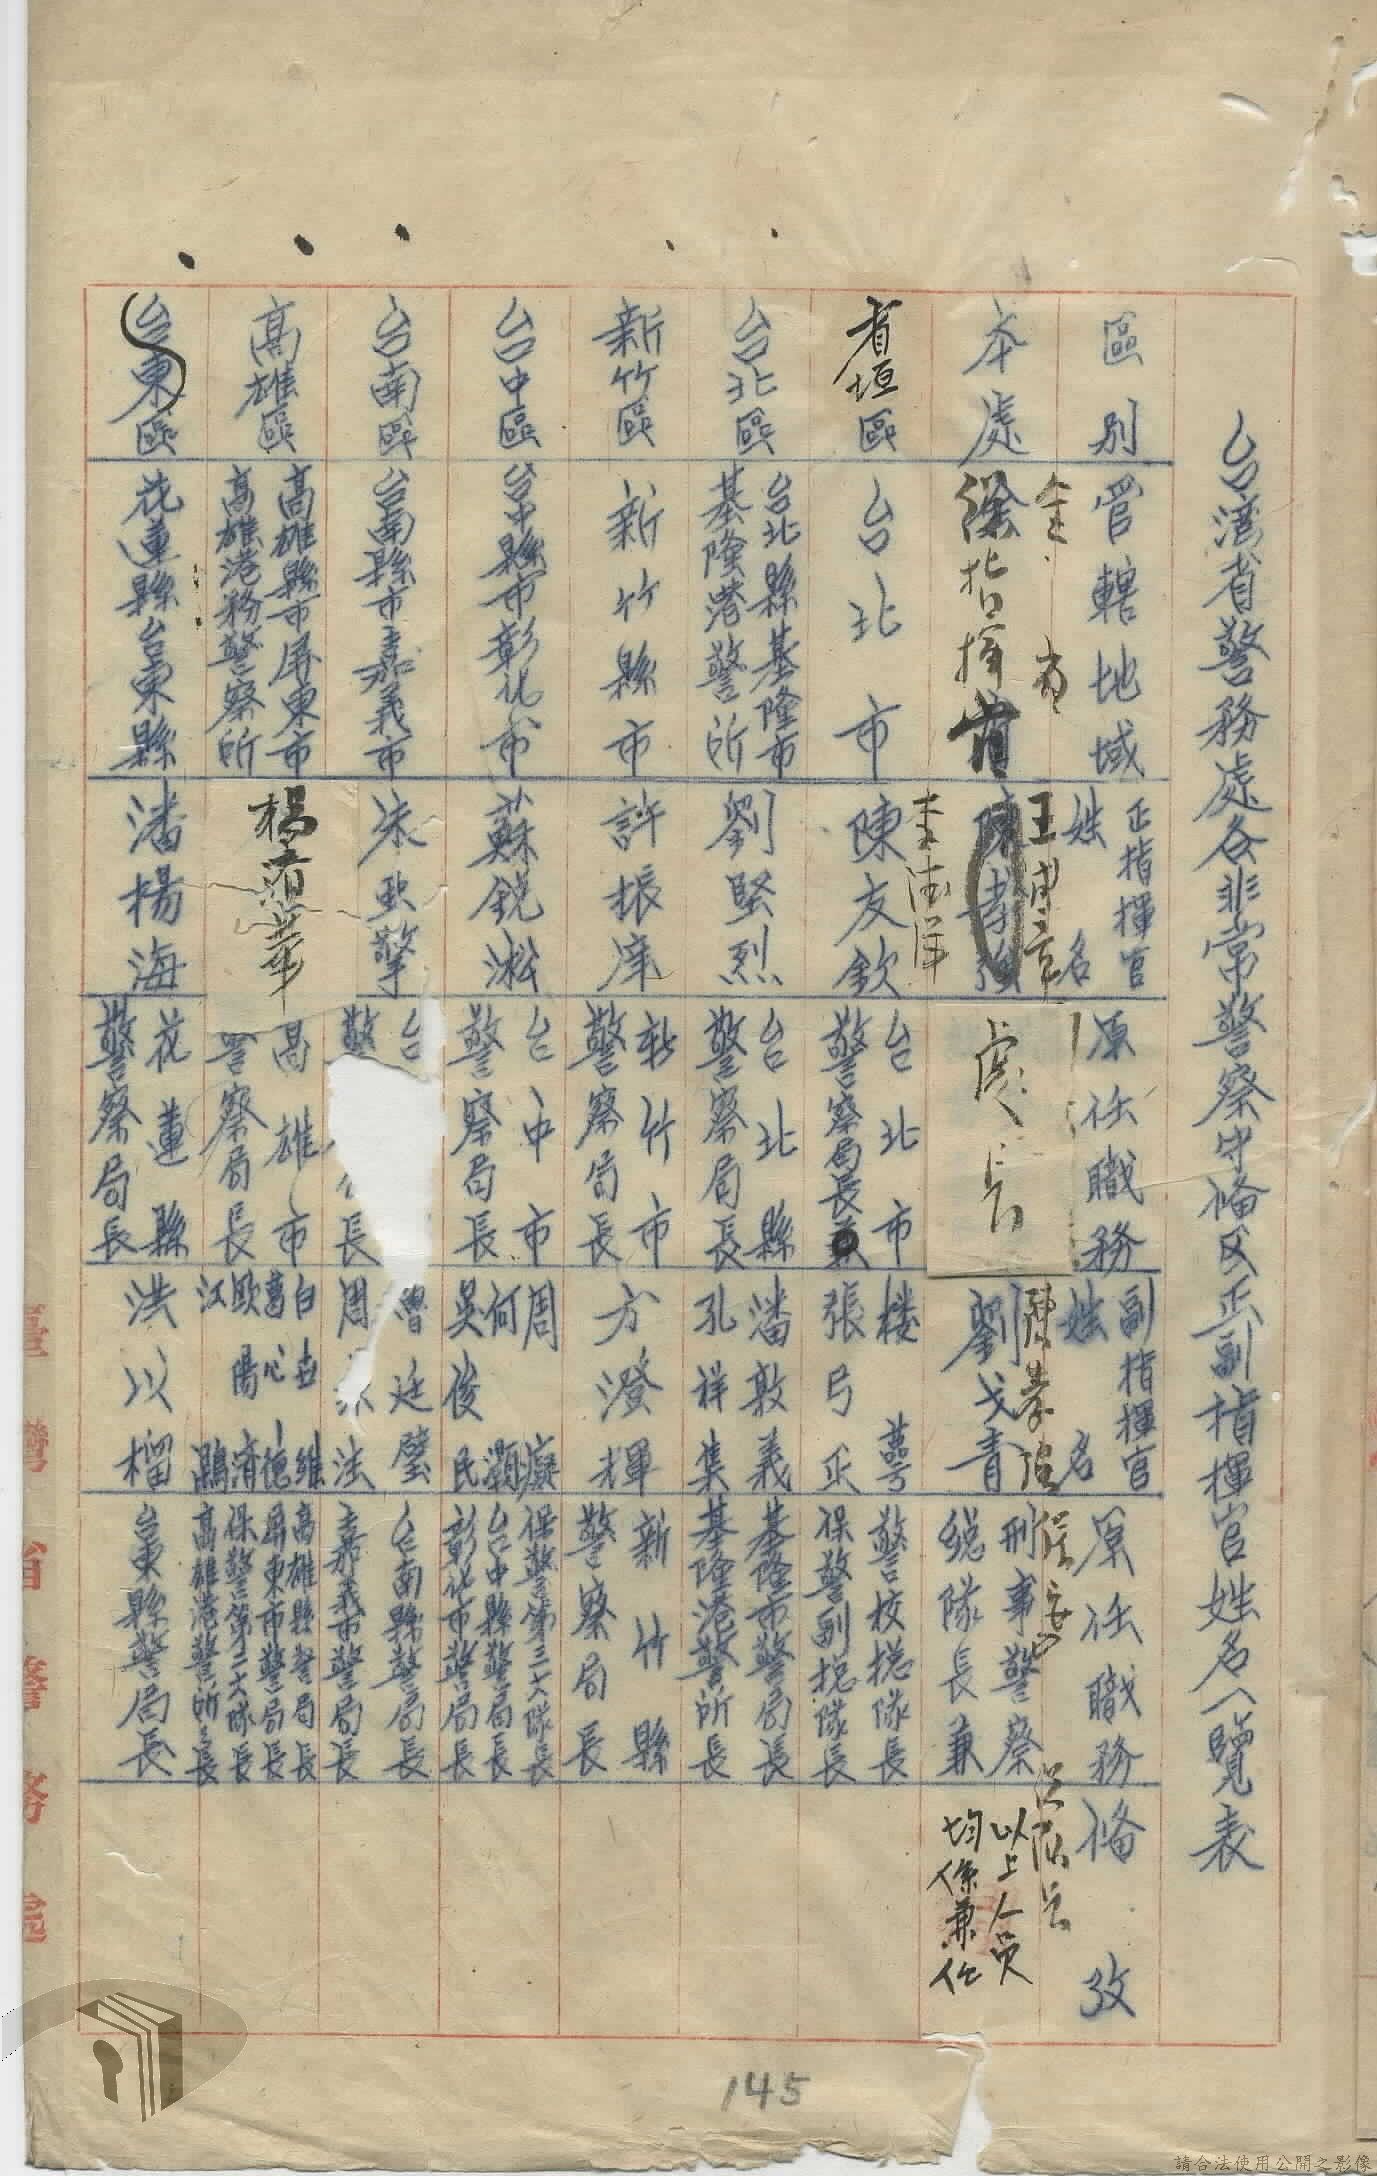 台湾省警務處各非常警察守備区正副指揮官姓名一覽表
區別 管轄地域 正指揮官姓名 原任職務 副指揮官姓名 原任職務 備攷
全 省 王成章 陳孝強
本處 處長 劉戈青 刑事警察總隊長兼
以上人員均係兼任
省垣區 台北市 陳友欽 台北市警察局長 張弓正 警校總隊長 保警副總隊長
台北區 台北縣基隆市 基隆港警所 劉堅烈 台北縣警察局長 潘敦義 孔祥集 基隆市警局長 基隆港警所長
新竹區 新竹縣市 許振庠 新竹市警察局長 方澄輝 新竹縣警察局長
台中區 台中縣市彰化市 蘇銳淞 台中市警察局長 周癡 何灝 吳俊民 保警第三大隊長 台中縣警局長 彰化市警局長
台南區 台南縣市嘉義市 台 警 長 曾廷璧 周 法 台南縣警局長 嘉義市警局長
高雄區 高雄縣市屏東市 高雄港務警察所 楊 華 高雄市警察局長 白世維 葛心德 歐陽濟 江鵬 高雄縣警局長 屏東市警局長 保警第二大隊長 高雄港警所長
台東區 花蓮縣台東縣 潘楊海 花蓮縣警察局長 洪以榴 台東縣警局長
145
臺灣省警務處
請合法使用公開之影像